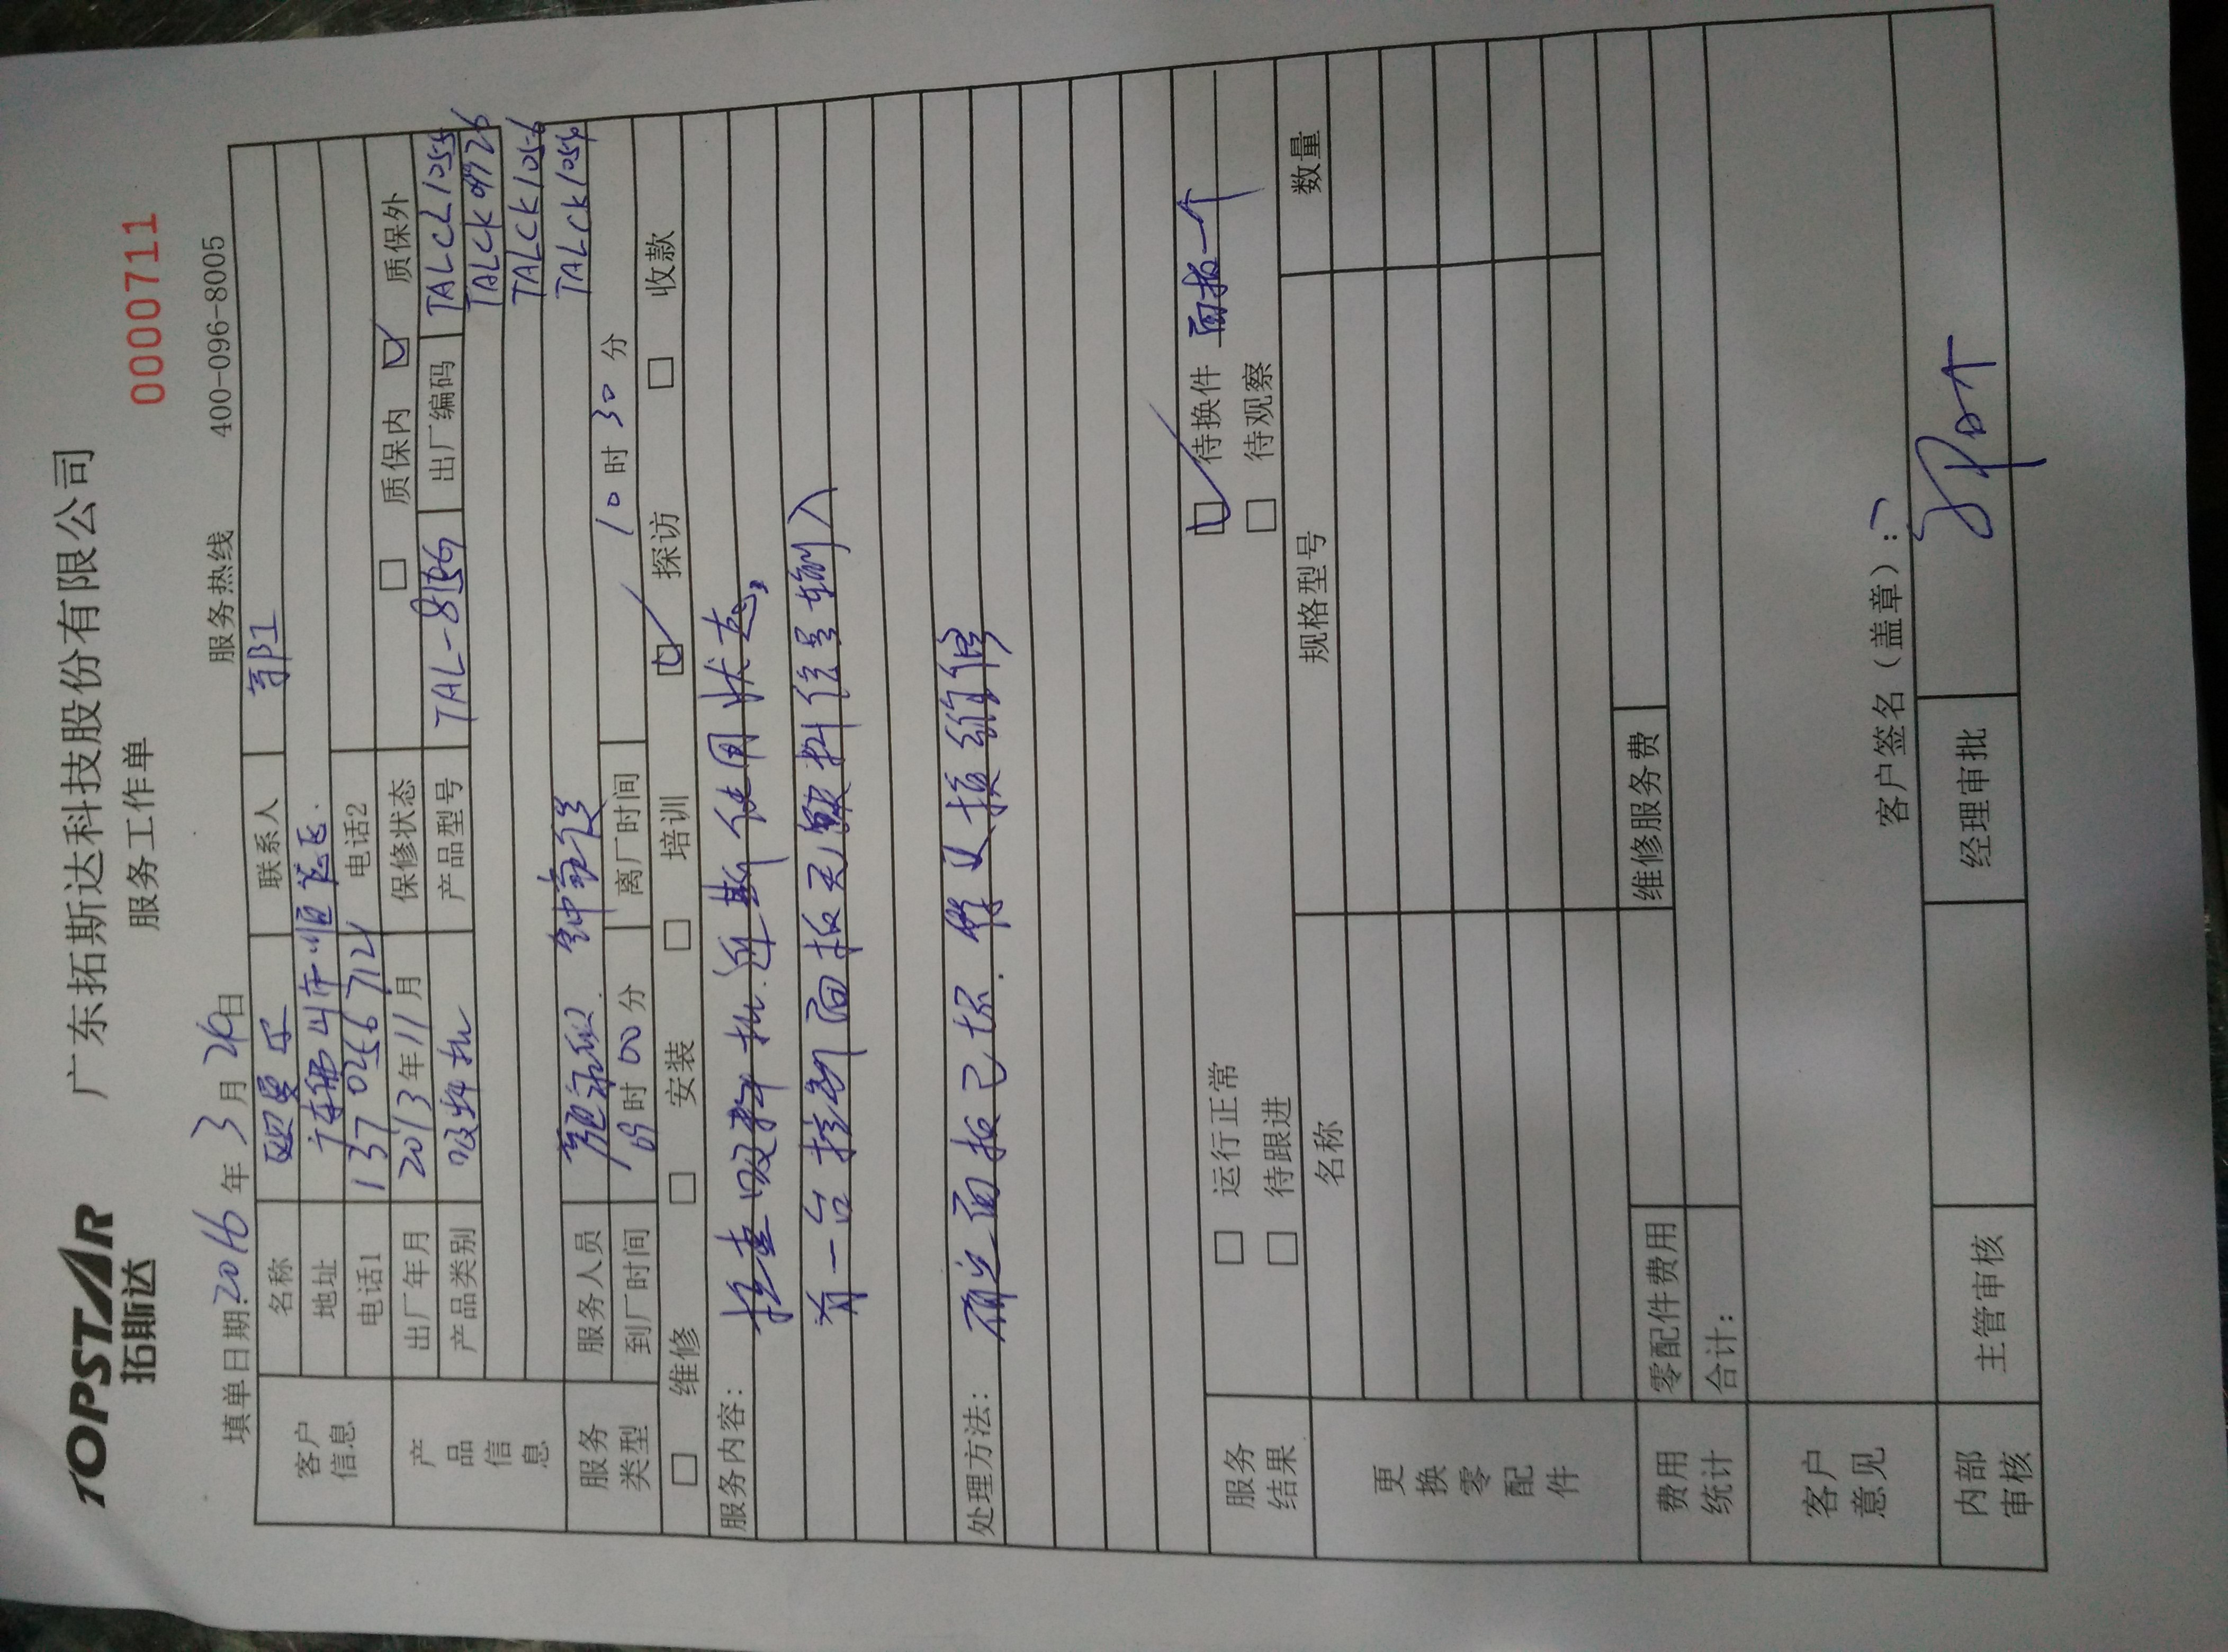 TOPSTAR 广东拓斯达科技股份有限公司
拓斯达 服务工作单 0000711
填单日期:2016年3月26日 服务热线 400-096-8005
客户信息 名称 欧曼尔 联系人
地址
电话1 13702566712 电话2
产品信息 出厂年月 2013年11月 保修状态 □ 质保内 ☑ 质保外
产品类别 吸料机 产品型号 TAL- 出厂编码 TALCL1055
TALCK0926
TALCK1056
TALCK1054
服务类型 服务人员
到厂时间 09时00分 离厂时间 10时30分
□ 维修 □ 安装 □ 培训 ☑ 探访 □ 收款
服务内容: 检查吸料机近期使用状态,
有一台控制面板无缺料信号输入
处理方法: 确定面板已坏.
服务结果 □ 运行正常 ☑ 待换件 面板一个
□ 待跟进 □ 待观察
更换零配件 名称 规格型号 数量
费用统计 零配件费用 维修服务费
合计:
客户意见
客户签名(盖章):
内部审核 主管审核 经理审批